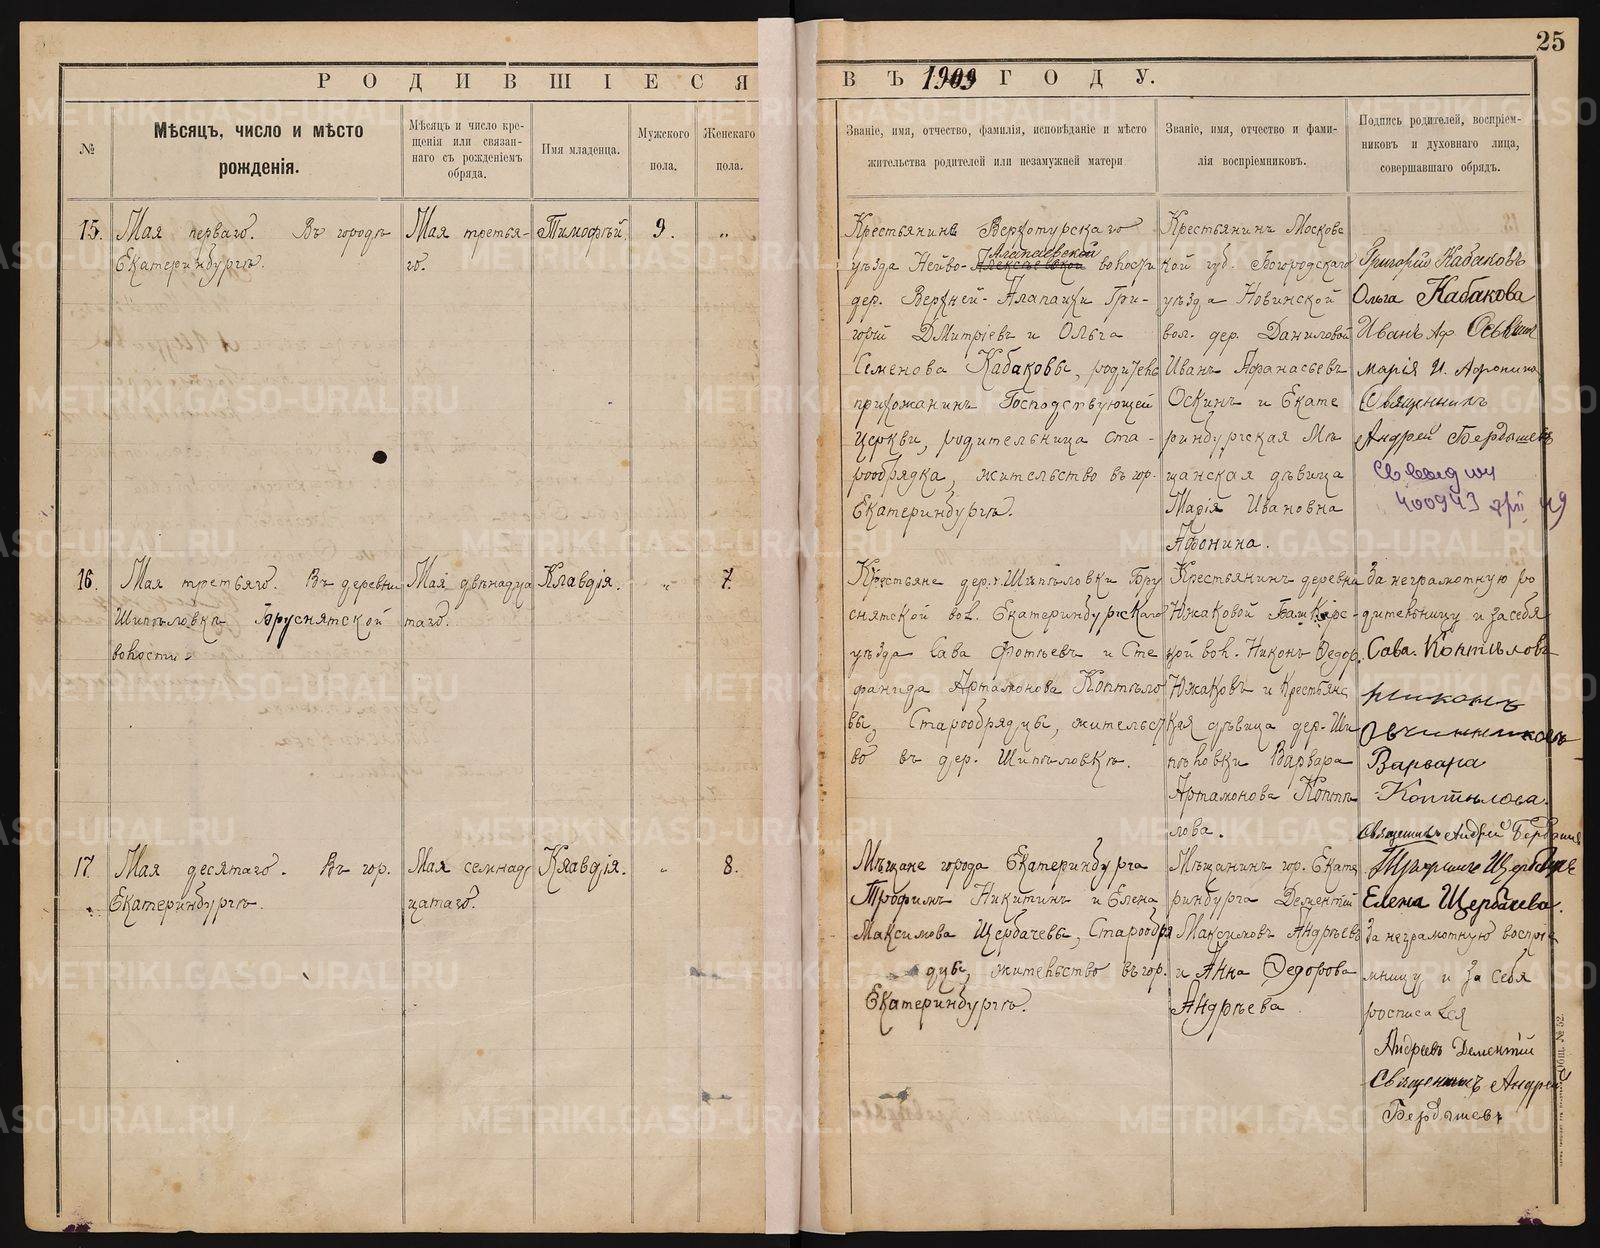 25
РОДИВШІЕСЯ ВЪ 1909 ГОДУ.
№
Мѣсяцъ, число и мѣсто
рожденія.
Мѣсяцъ и число кре-
щенія или связан-
наго съ рожденіемъ
обряда.
Имя младенца.
Мужского
пола.
Женскаго
пола.
Званіе, имя, отчество, фамилія, исповѣданіе и мѣсто
жительства родителей или незамужней матери
Званіе, имя, отчество и фами-
лія воспріемниковъ.
Подпись родителей, воспріем-
никовъ и духовнаго лица,
совершавшаго обрядъ.
15.
Мая перваго. Въ городѣ
Екатеринбургѣ.
Мая третья-
го.
Тимофѣй.
9.
„
Крестьянинъ Верхотурскаго
Алапаевской
уѣзда Нейво- волости
дер. Верхней-Алапаихи Гри-
горій Дмитріевъ и Ольга
Семенова Кабаковы, родитель
прихожанинъ Господствующей
церкви, родительница ста-
рообрядка, жительство въ гор.
Екатеринбургѣ.
Крестьянинъ Москов
кой губ. Богородскаго
уѣзда Новинской
вол. дер. Даниловой
Иванъ Афанасьевъ
Оскинъ и Екате
ринбургская Мѣ
щанская дѣвица
Марія Ивановна
Афонина.
Григорій Кабаковъ
Ольга Кабакова
Иванъ Аф
марія И. Афонина
Священникъ
Андрей Бердышевъ
400943
49
16.
Мая третьяго. Въ деревни
Шипѣловкѣ Бруснятской
волости.
Мая двѣнадца
таго.
Клавдія.
„
7.
Крестьяне дер. Шипѣловки Бру
снятской вол. Екатеринбургскаго
уѣзда Сава Фотѣевъ и Сте
фанида Артамонова Коптѣло
вы, Старообрядцы, жительст
во въ дер. Шипѣловкѣ.
Крестьянинъ деревни
Южаковой Башкарс-
кой вол. Никонъ Федор.
Южаковъ и Крестьянс
кая дѣвица дер. Ши
пѣловки Варвара
Артамонова Коптѣ
лова.
За неграмотную ро
дительницу и за себя
Сава. Коптѣловъ
никонъ
Овчинниковъ
Варвара
Коптѣлова.
Священникъ Андрей Бердышев
17
Мая десятаго. Въ гор.
Екатеринбургѣ.
Мая семнад
цатаго.
Клавдія.
„
8.
Мѣщане города Екатеринбурга
Трофимъ Никитинъ и Елена
Максимова Щербачевы, Старообря
дцы, жительство въ гор.
Екатеринбургѣ.
Мѣщанинъ гор. Екате
ринбурга Дементій
Максимовъ Андрѣевъ
и Анна Федорова
Андрѣева
Щербачев
Елена Щербачева.
За неграмотную воспріе
мницу и за себя
росписался
Андреевъ Дементій
Священникъ Андрей
Бердышевъ
METRIKI.GASO-URAL.RU